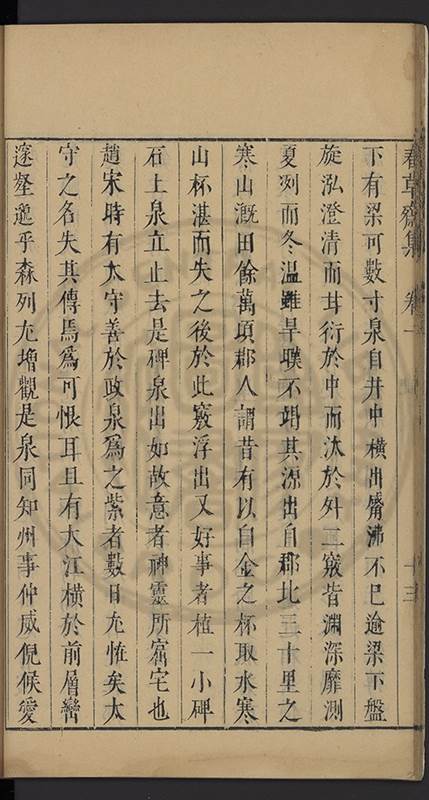 春草齋集 卷一 十三
下有梁可數寸泉自井中橫出觱沸不已逾梁下盤
旋泓澄清而甘衍於中而汰於外二竅皆淵深靡測
夏冽而冬溫雖旱暵不竭其源出自郡北三十里之
寒山溉田餘萬頃郡人謂昔有以白金之杯取水寒
山杯湛而失之後於此竅浮出又好事者植一小碑
石上泉立止去是碑泉出如故意者神靈所窟宅也
趙宋時有太守善於政泉爲之紫者數日尤恠矣太
守之名失其傳焉爲可恨耳且有大江橫於前層巒
邃壑邐乎森列尤增觀是泉同知州事仲威倪侯愛